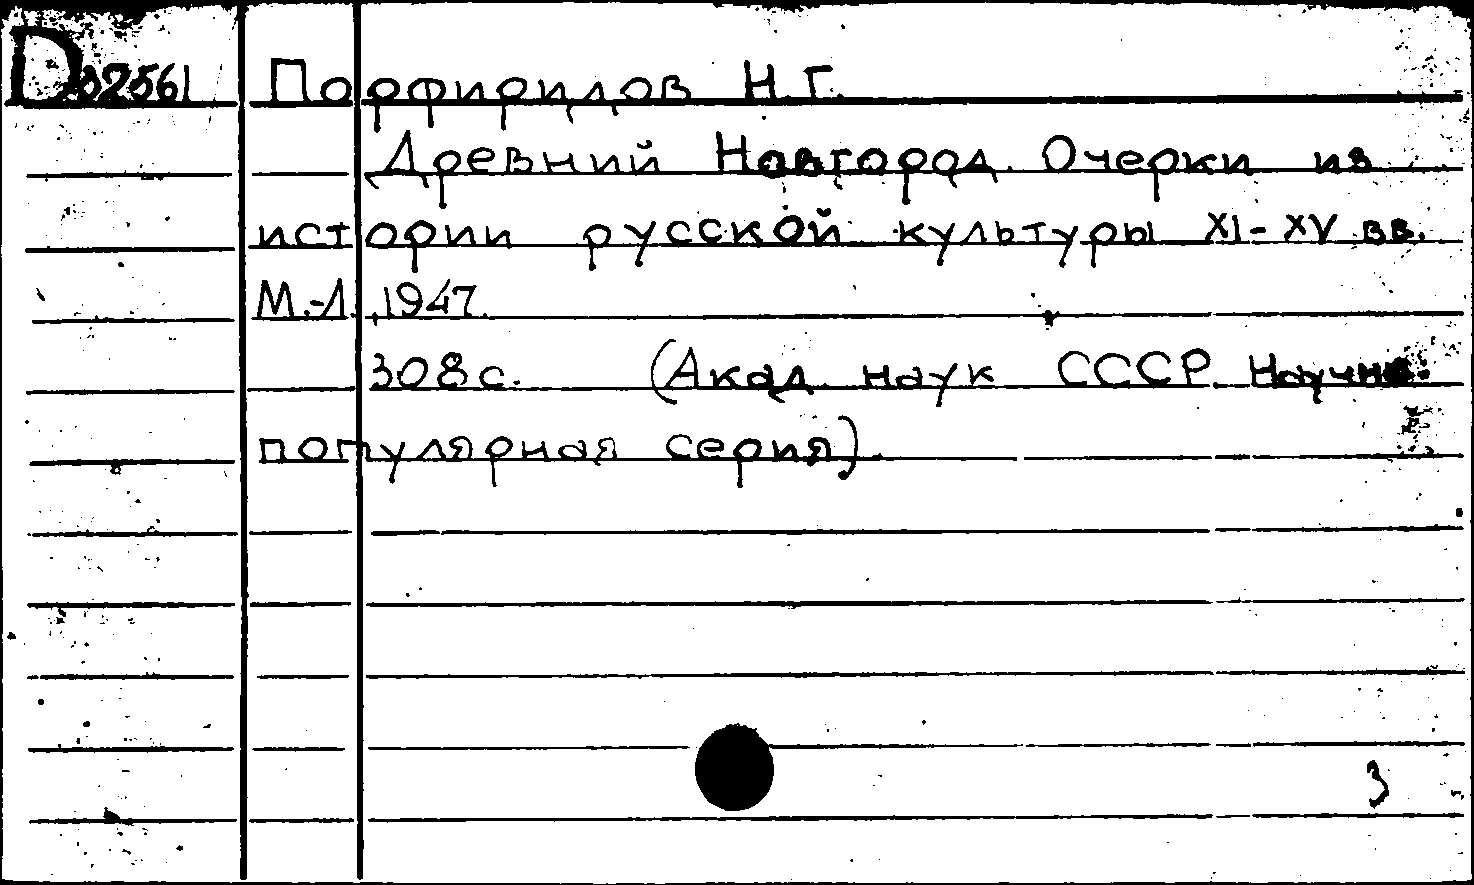 D 32561 Порфиридов Н.Г.
Древний Новгород. Очерки из
истории русской культуры XI-XV вв.
М.-Л., 1947.
308 с. (Акад. наук СССР. Научно-
популярная серия).
3